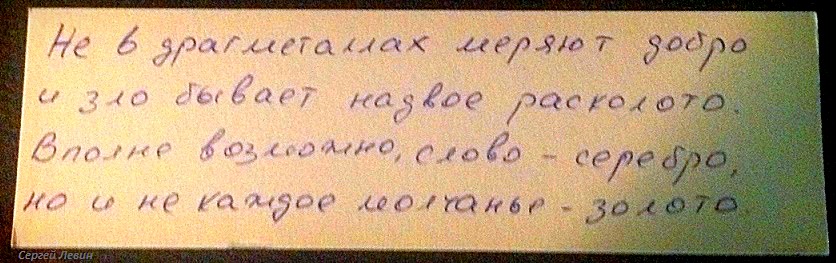 Не в драгметаллах меряют добро
и зло бывает надвое расколото.
Вполне возможно, слово - серебро,
но и не каждое молчанье - золото.
Сергей Левин